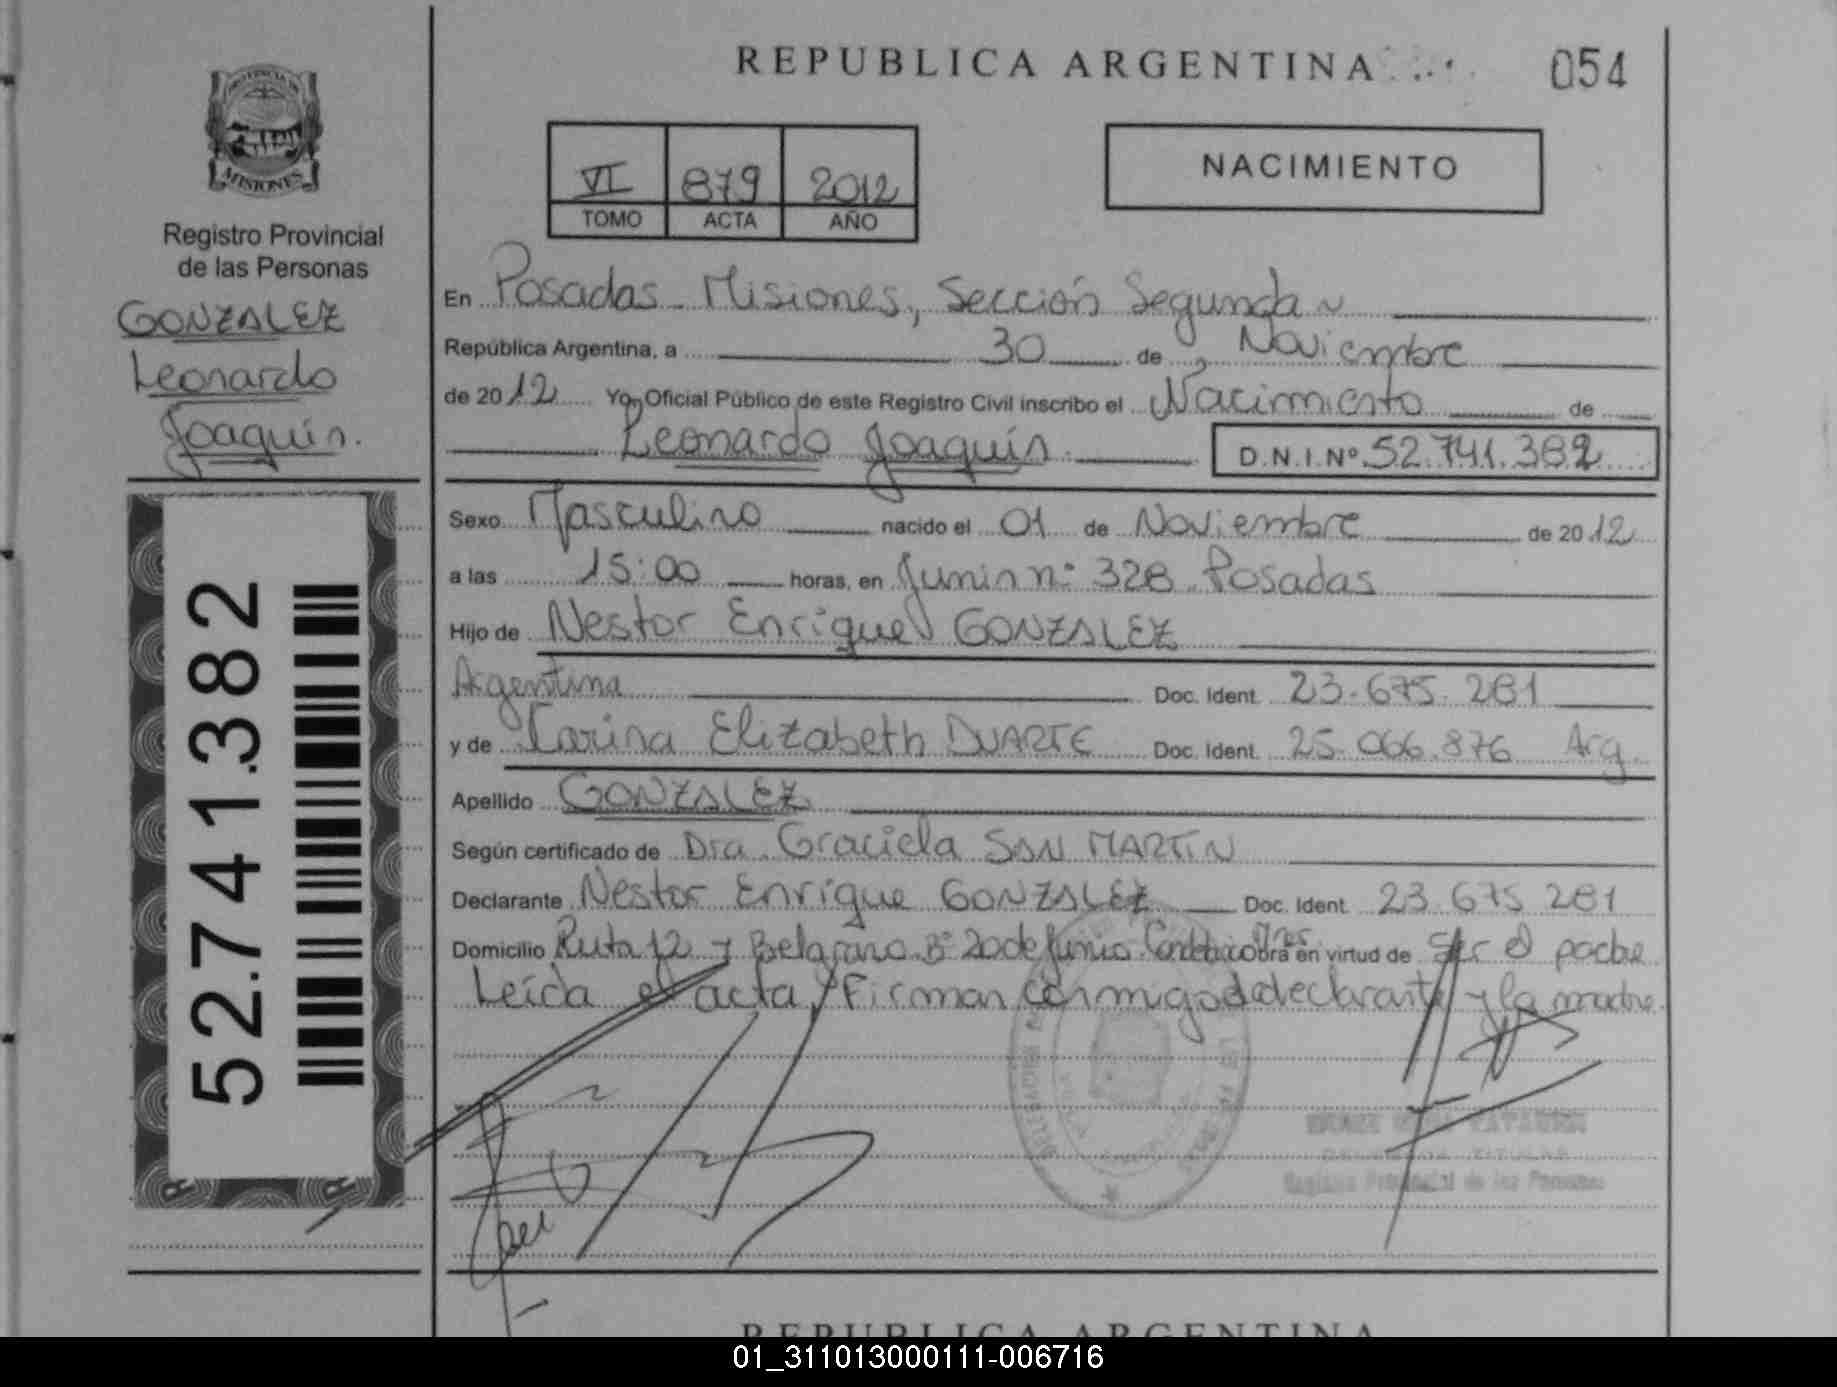 REPUBLICA ARGENTINA
054
PROVINCIA DE
MISIONES
Registro Provincial
de las Personas
GONZALEZ
Leonardo
Joaquín.
52.741.382
VI 879 2012
TOMO ACTA AÑO
NACIMIENTO
En Posadas - Misiones, Sección Segunda
República Argentina, a 30 de Noviembre
de 2012 Yo, Oficial Público de este Registro Civil inscribo el Nacimiento de
Leonardo Joaquín. D.N.I.Nº 52.741.382
Sexo Masculino nacido el 01 de Noviembre de 2012
a las 15:00 horas, en Junin nº 328 Posadas
Hijo de Nestor Enrique GONZALEZ
Argentina Doc. Ident. 23.675.281
y de Karina Elizabeth DUARTE Doc. Ident. 25.066.876 Arg.
Apellido GONZALEZ
Según certificado de Dra. Graciela SAN MARTIN
Declarante Nestor Enrique GONZALEZ Doc. Ident. 23.675.281
Domicilio Ruta 12 y Belgrano Bº 20 de Junio. Obra en virtud de Ser el padre
Leída el acta, Firman conmigo el declarante y la madre.
Registro Provincial de las Personas
REPUBLICA ARGENTINA
01_311013000111-006716